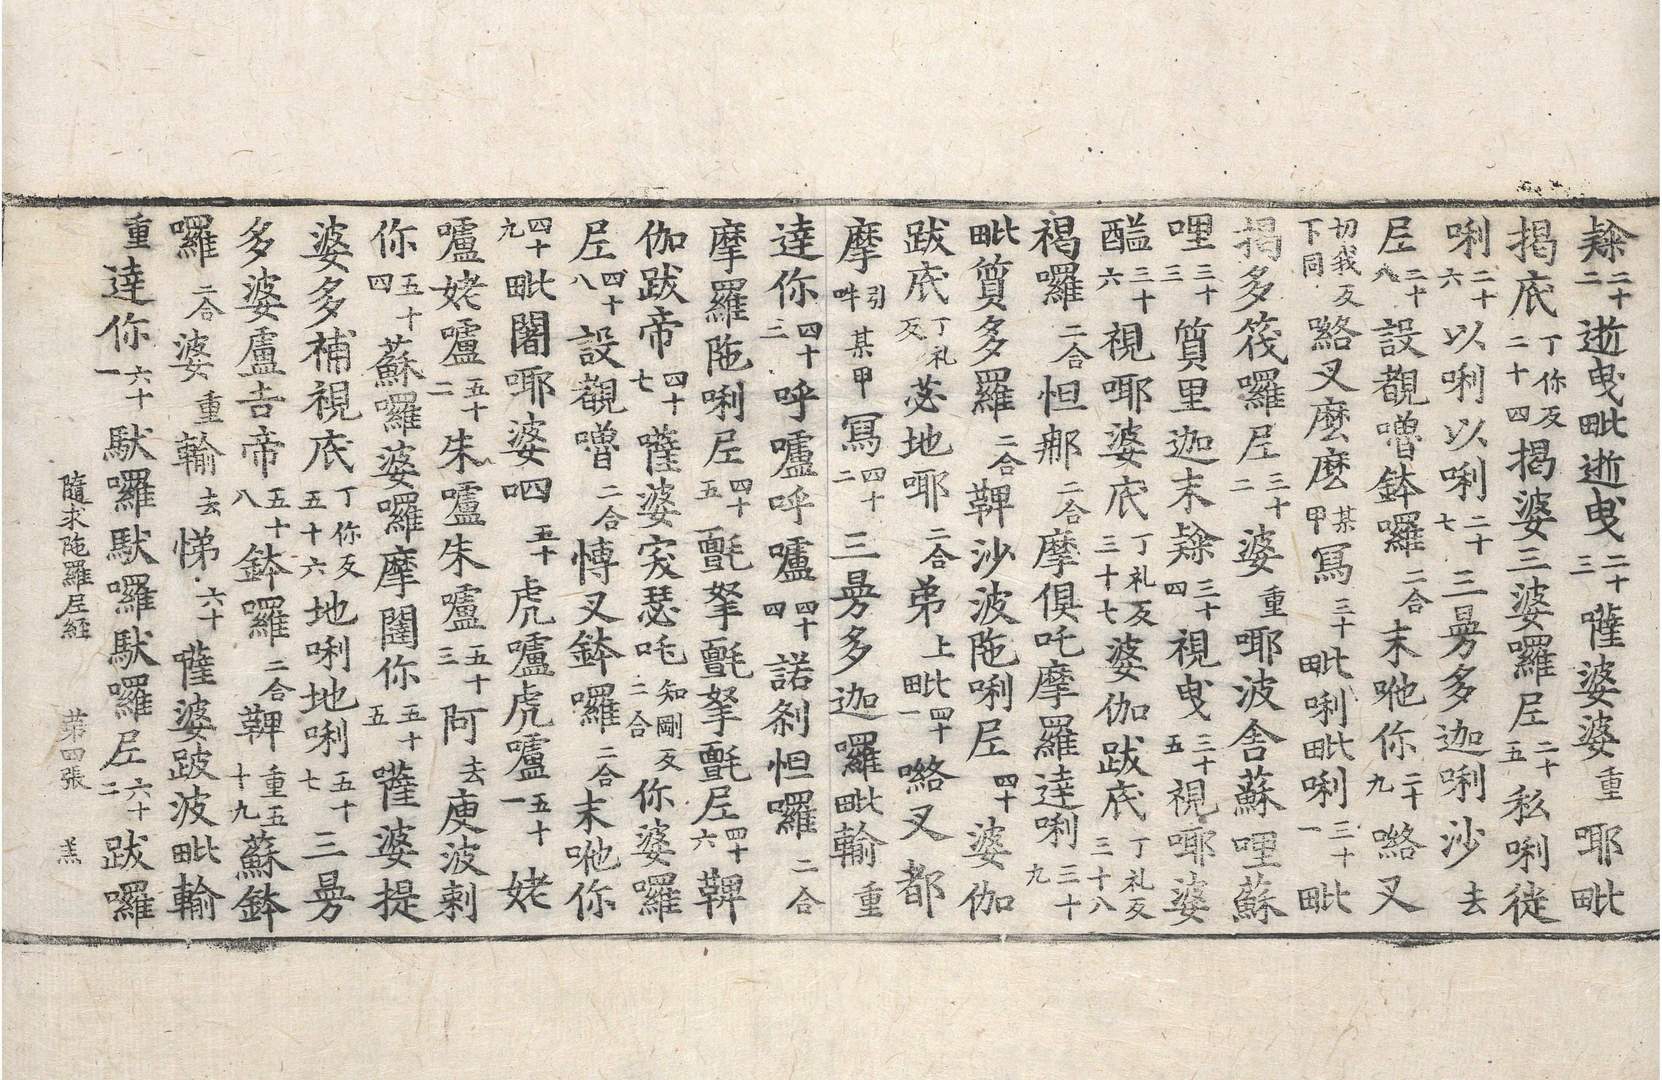 㜸二十二逝曳毗逝曳二十三薩婆婆重耶毗
揭底丁你反二十四揭婆三婆囉尼二十五私唎徙
唎二十六以唎以唎二十七三曼多迦唎沙去
尼二十八設覩嚕鉢囉二合末哋你二十九㗉叉
切我反下同㗉叉麼麼某甲寫三十毗唎毗唎三十一毗
揭多筏囉尼三十二婆重耶波舍蘇哩蘇
哩三十三質里迦末㜸三十四視曳三十五視耶婆
醯三十六視耶婆底丁礼反三十七婆伽跋底丁礼反三十八
褐囉二合怛那二合摩俱吒摩羅達唎三十九
毗質多羅二合鞞沙波陁唎尼四十婆伽
跋底丁礼反苾地耶二合弟上毗四十一㗉叉都
摩引吽某甲寫四十二三曼多迦囉毗輸重
達你四十三呼嚧呼嚧四十四諾剎怛囉二合
摩羅陁唎尼四十五氎拏氎拏氎尼四十六鞞
伽跋帝四十七薩婆突瑟吒知剛反二合你婆囉
尼四十八設覩嚕二合愽叉鉢囉二合末哋你
四十九毗闍耶婆呬五十虎嚧虎嚧五十一姥
嚧姥嚧五十二朱嚧朱嚧五十三阿去庾波剌
你五十四蘇囉婆囉摩闥你五十五薩婆提
婆多補視底丁你反五十六地唎地唎五十七三曼
多婆盧吉帝五十八鉢囉二合鞞重五十九蘇鉢
囉二合婆重輸去悌六十薩婆跛波毗輸
重達你六十一馱囉馱囉馱囉尼六十二跋囉
隨求陁羅尼經 苐四張 羔